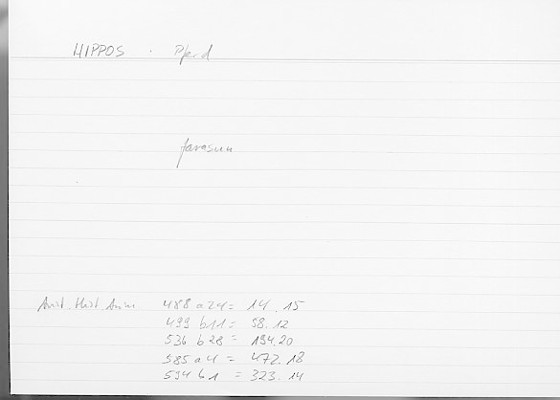 HIPPOS · Pferd
farasun
Arist. Hist. Anim. 488 a 24 = 14.15
499 b 11 = 58.12
536 b 28 = 194.20
585 a 4 = 472.18
594 b 1 = 323.14